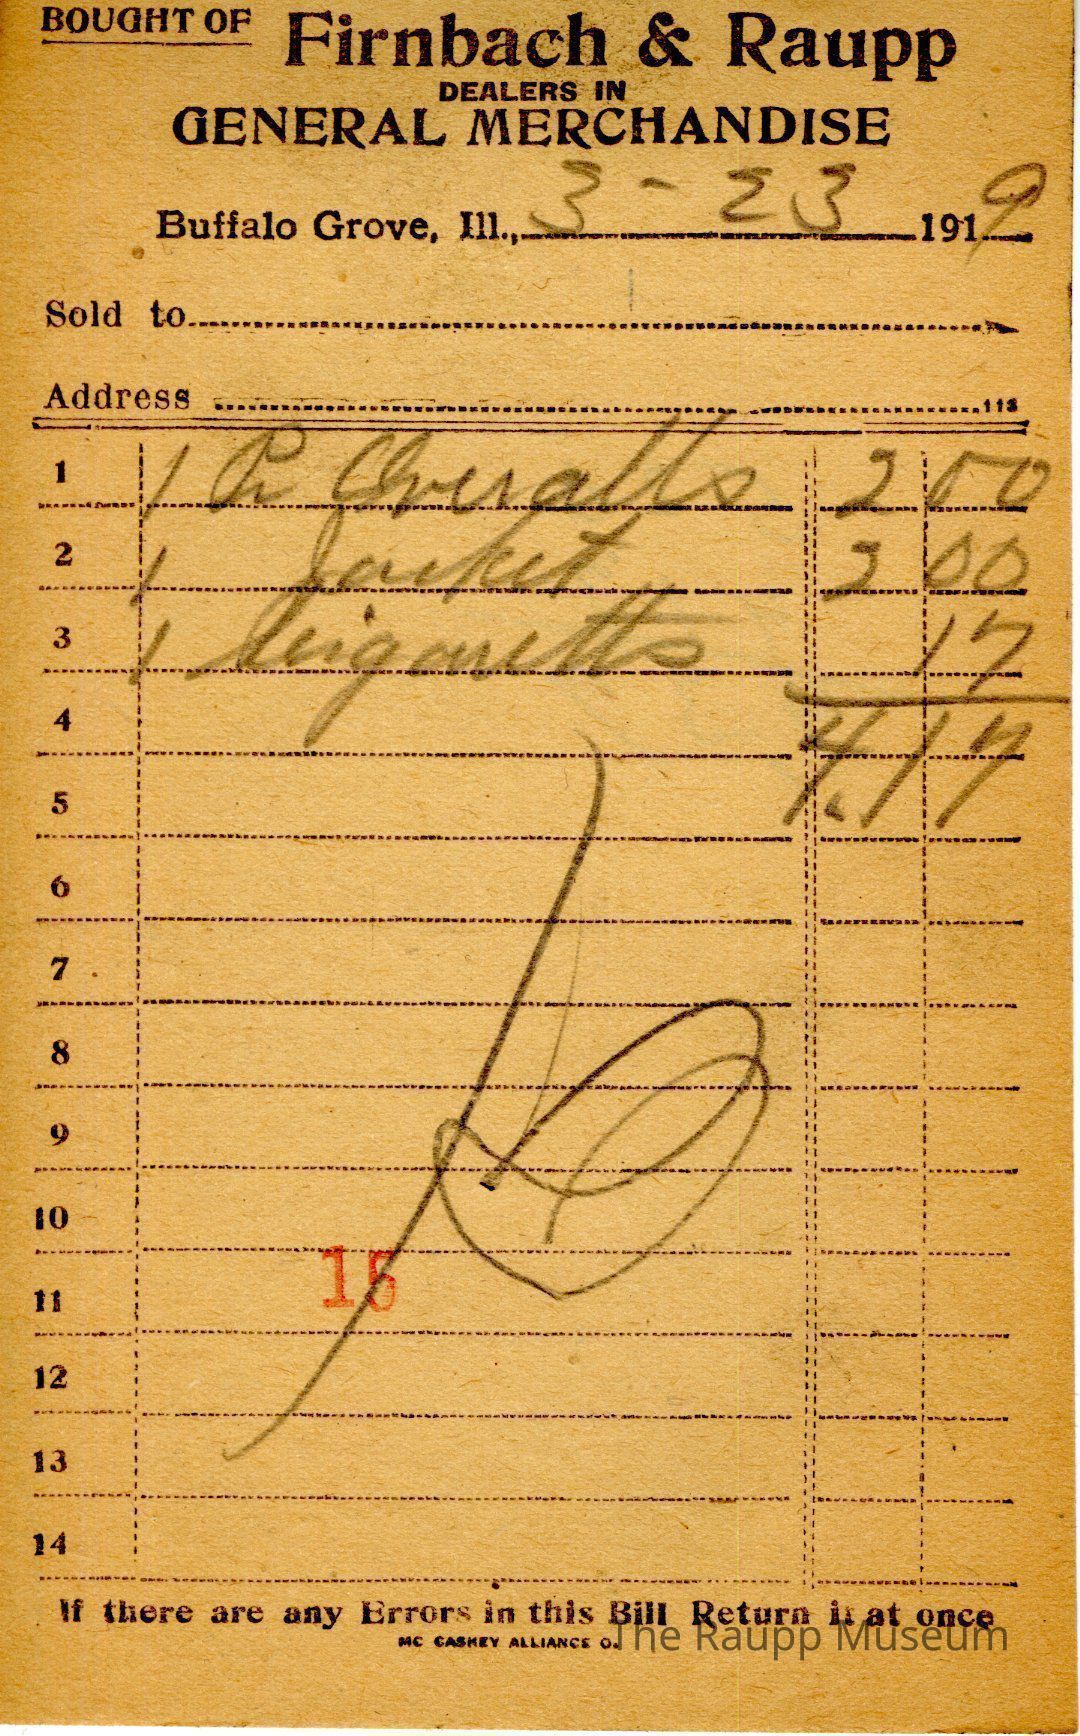 BOUGHT OF Firnbach & Raupp
DEALERS IN
GENERAL MERCHANDISE
Buffalo Grove, Ill., 3 - 23 1919
Sold to
Address 113
1 1 Pr Overalls 2 00
2 1 Jacket 2 00
3 1 Cigaretts 17
4 4.17
5
6
7
8
9
10
11 15
12
13
14
If there are any Errors in this Bill Return it at once
MC CASKEY ALLIANCE O.
The Raupp Museum